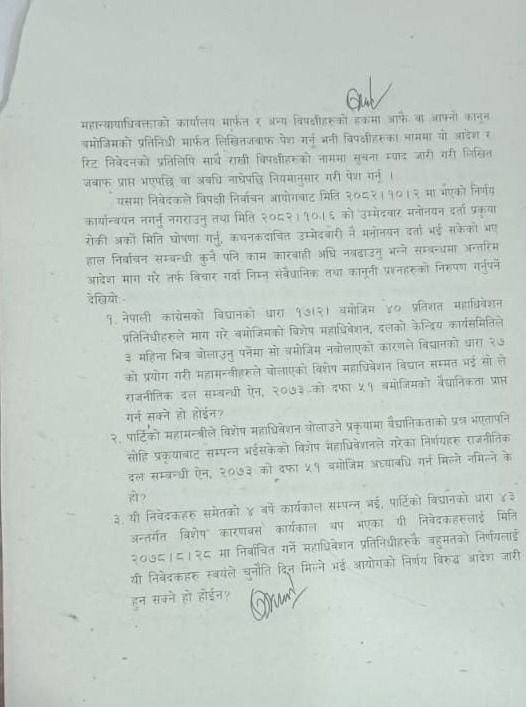 महान्यायाधिवक्ताको कार्यालय मार्फत र अन्य विपक्षीहरुको हकमा आफै वा आफ्नो कानुन
बमोजिमको प्रतिनिधी मार्फत लिखितजवाफ पेश गर्नु भनी विपक्षीहरुका नाममा यो आदेश र
रिट निवेदनको प्रतिलिपि साथै राखी विपक्षीहरुको नाममा सुचना म्याद जारी गरी लिखित
जवाफ प्राप्त भएपछि वा अवधि नाघेपछि नियमानुसार गरी पेश गर्नु ।
यसमा निवेदकले विपक्षी निर्वाचन आयोगबाट मिति २०८२।१०।२ मा भएको निर्णय
कार्यान्वयन नगर्नु नगराउनु तथा मिति २०८२।१०।६ को उम्मेदबार मनोनयन दर्ता प्रकृया
रोकी अर्को मिति घोषणा गर्नु, कथनकदाचित उम्मेदबारी नै मनोनयन दर्ता भई सकेको भए
हाल निर्वाचन सम्बन्धी कुनै पनि काम कारबाही अघि नबढाउनु भन्ने सम्बन्धमा अन्तरिम
आदेश माग गरे तर्फ विचार गर्दा निम्न संवैधानिक तथा कानूनी प्रश्नहरुको निरुपण गर्नुपर्ने
देखियो:
१. नेपाली कांग्रेसको विधानको धारा १७(२) बमोजिम ४० प्रतिशत महाधिवेशन
प्रतिनिधीहरुले माग गरे बमोजिमको विशेष महाधिवेशन, दलको केन्द्रिय कार्यसमितिले
३ महिना भित्र बोलाउनु पर्नेमा सो बमोजिम नबोलाएको कारणले विधानको धारा २७
को प्रयोग गरी महामन्त्रीहरुले बोलाएको विशेष महाधिवेशन विधान सम्मत भई सो ले
राजनीतिक दल सम्बन्धी ऐन, २०७३ को दफा ५१ बमोजिमको वैधानिकता प्राप्त
गर्न सक्ने हो होईन?
२. पार्टिको महामन्त्रीले विशेष महाधिवेशन बोलाउने प्रकृयामा वैधानिकताको प्रश्न भएतापनि
सोहि प्रकृयाबाट सम्पन्न भईसकेको विशेष महाधिवेशनले गरेका निर्णयहरु राजनीतिक
दल सम्बन्धी ऐन, २०७३ को दफा ५१ बमोजिम अध्यावधि गर्न मिल्ने नमिल्ने के
हो?
३. यी निवेदकहरु समेतको ४ बर्षे कार्यकाल सम्पन्न भई, पार्टिको विधानको धारा ४३
अन्तर्गत विशेष कारणवस कार्यकाल थप भएका यी निवेदकहरुलाई मिति
२०७८।८।२८ मा निर्वाचित गर्ने महाधिवेशन प्रतिनिधीहरुकै बहुमतको निर्णयलाई
यी निवेदकहरु स्वयंले चुनौति दिन मिल्ने भई आयोगको निर्णय विरुद्ध आदेश जारी
हुन सक्ने हो होईन?